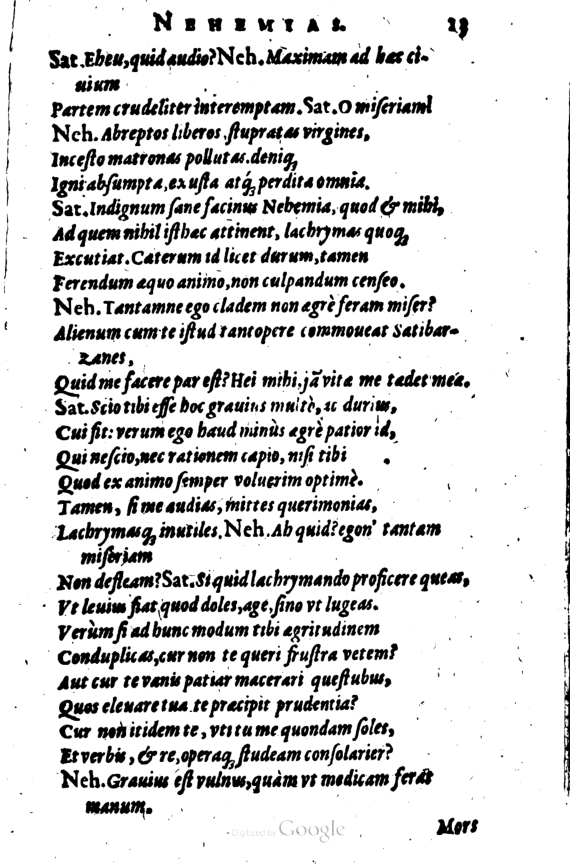 NEHEMIAS. 23
Sat. Eheu, quid audio? Neh. Maximam ad hæc ci-
uium
Partem crudeliter interemptam. Sat. O miseriam!
Neh. Abreptos liberos, stupratas virgines,
Incesto matronas pollutas. deniq;
Igni absumpta, exusta atq; perdita omnia.
Sat. Indignum sane facinus Nehemia, quod & mihi,
Ad quem nihil isthæc attinent, lachrymas quoq;
Excutiat. Cæterum id licet durum, tamen
Ferendum æquo animo, non culpandum censeo.
Neh. Tantamne ego cladem non ægrè feram miser?
Alienum cum te istud tantopere commoueat Satibar-
zanes,
Quid me facere par est? Hei mihi, jã vitæ me tædet meæ.
Sat. Scio tibi esse hoc grauius multò, ac durius,
Cui fit: verum ego haud minùs ægrè patior id,
Qui nescio, nec rationem capio, nisi tibi
Quod ex animo semper voluerim optimè.
Tamen, si me audias, mittes querimonias,
Lachrymasq; inutiles. Neh. Ab quid? egon' tantam
miseriam
Non defleam? Sat. Si quid lachrymando proficere queas,
Vt leuius fiat quod doles, age, sino vt lugeas.
Verùm si ad hunc modum tibi ægritudinem
Conduplicas, cur non te queri frustra vetem?
Aut cur te vanis patiar macerari questubus,
Quos eleuare tua te præcipit prudentia?
Cur non itidem te, vti tu me quondam soles,
Et verbis, & re, operaq; studeam consolarier?
Neh. Grauius est vulnus, quàm vt medicam ferat
manum.
Digitized by Google
Mors